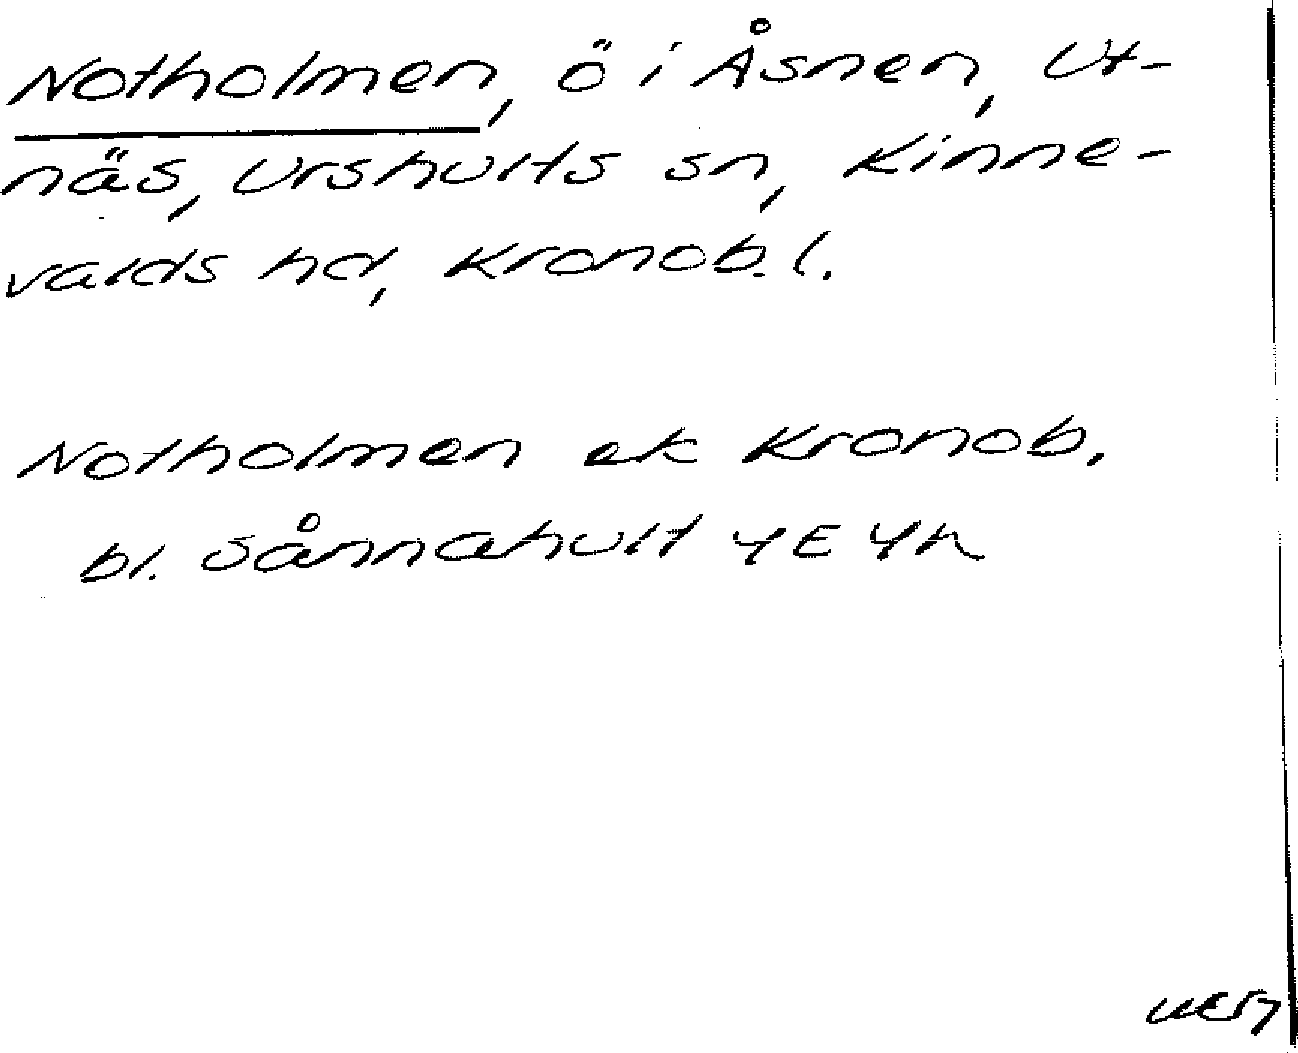 Notholmen, ö i Åsnen, Ut-
näs, Urshults sn, Kinne-
valds hd, Kronob. l.
Notholmen ek Kronob.
bl. Sånnahult 4E 4h